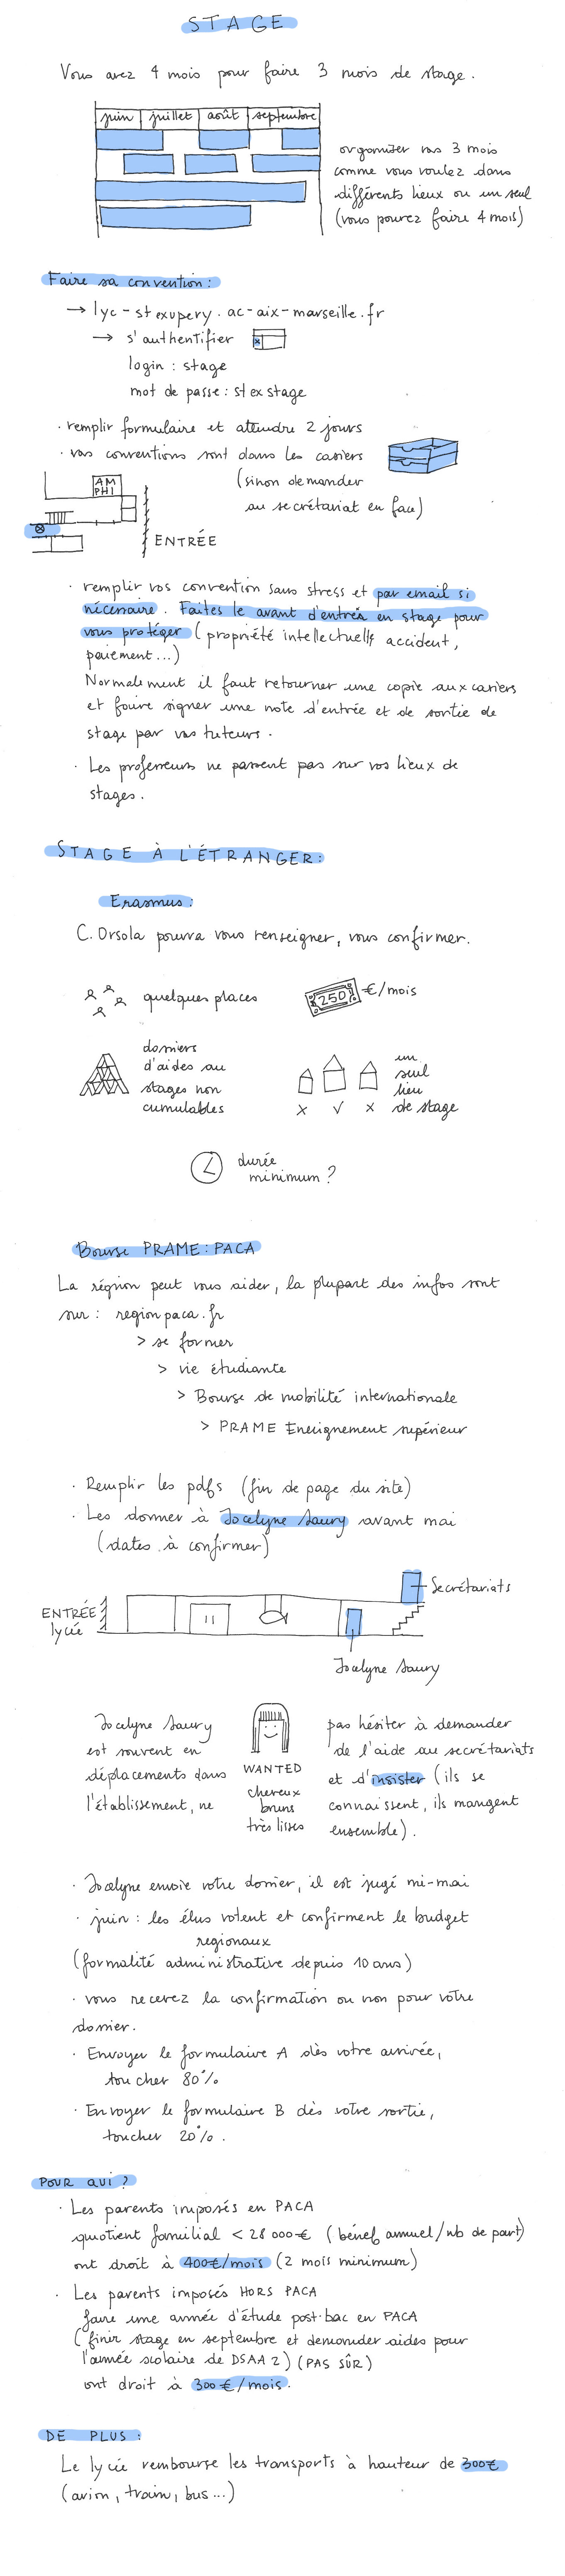 STAGE
Vous avez 4 mois pour faire 3 mois de stage.
juin juillet août septembre
organiser vos 3 mois
comme vous voulez dans
différents lieux ou un seul
(vous pouvez faire 4 mois)
Faire sa convention :
→ lyc-stexupery.ac-aix-marseille.fr
→ s'authentifier
login : stage
mot de passe : stexstage
· remplir formulaire et attendre 2 jours
· vos conventions sont dans les casiers
(sinon demander
au secrétariat en face)
AM
PHI
ENTRÉE
· remplir vos convention sans stress et par email si
nécessaire. Faites le avant d'entrés en stage pour
vous protéger (propriété intellectuelle, accident,
paiement...)
Normalement il faut retourner une copie aux casiers
et faire signer une note d'entrée et de sortie de
stage par vos tuteurs.
· Les professeurs ne passent pas sur vos lieux de
stages.
STAGE À L'ÉTRANGER :
Erasmus :
C. Orsola pourra vous renseigner, vous confirmer.
quelques places
250 €/mois
dossiers
d'aides au
stages non
cumulables
un
seul
lieu
x √ x de stage
durée
minimum ?
Bourse PRAME : PACA
La région peut vous aider, la plupart des infos sont
sur : regionpaca.fr
> se former
> vie étudiante
> Bourse de mobilité internationale
> PRAME Enseignement supérieur
· Remplir les pdfs (fin de page du site)
· Les donner à Jocelyne Saury avant mai
(dates à confirmer)
Secrétariats
ENTRÉE
lycée
Jocelyne Saury
Jocelyne Saury
est souvent en
déplacements dans
l'établissement, ne
WANTED
cheveux
bruns
très lisses
pas hésiter à demander
de l'aide au secrétariats
et d'insister (ils se
connaissent, ils mangent
ensemble).
· Jocelyne envoie votre dossier, il est jugé mi-mai
· juin : les élus votent et confirment le budget
regionaux
(formalité administrative depuis 10 ans)
· vous recevez la confirmation ou non pour votre
dossier.
· Envoyer le formulaire A dès votre arrivée,
toucher 80%
· Envoyer le formulaire B dès votre sortie,
toucher 20%.
POUR QUI ?
· Les parents imposés en PACA
quotient familial < 28 000€ (bénef annuel/nb de part)
ont droit à 400€/mois (2 mois minimum)
· Les parents imposés HORS PACA
faire une année d'étude post-bac en PACA
(finir stage en septembre et demander aides pour
l'année scolaire de DSAA 2) (PAS SÛR)
ont droit à 300€/mois.
DE PLUS :
Le lycée rembourse les transports à hauteur de 300€
(avion, train, bus...)